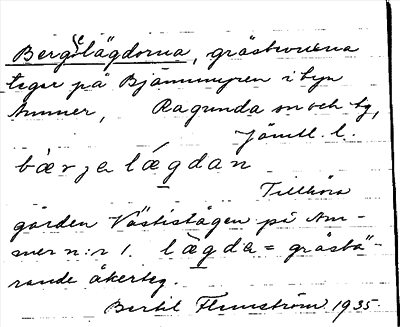 Bergslägdorna, gräsbevuxna
tegar på Bjännmyren i byn
Ammer, Ragunda sn och tg,
Jämtl. l.
bærjelǽgdan
Tillhöra
gården Västistågen på Am-
mer n:r 1. lægda = gräsbä-
rande åkerteg.
Bertil Flemström 1935.